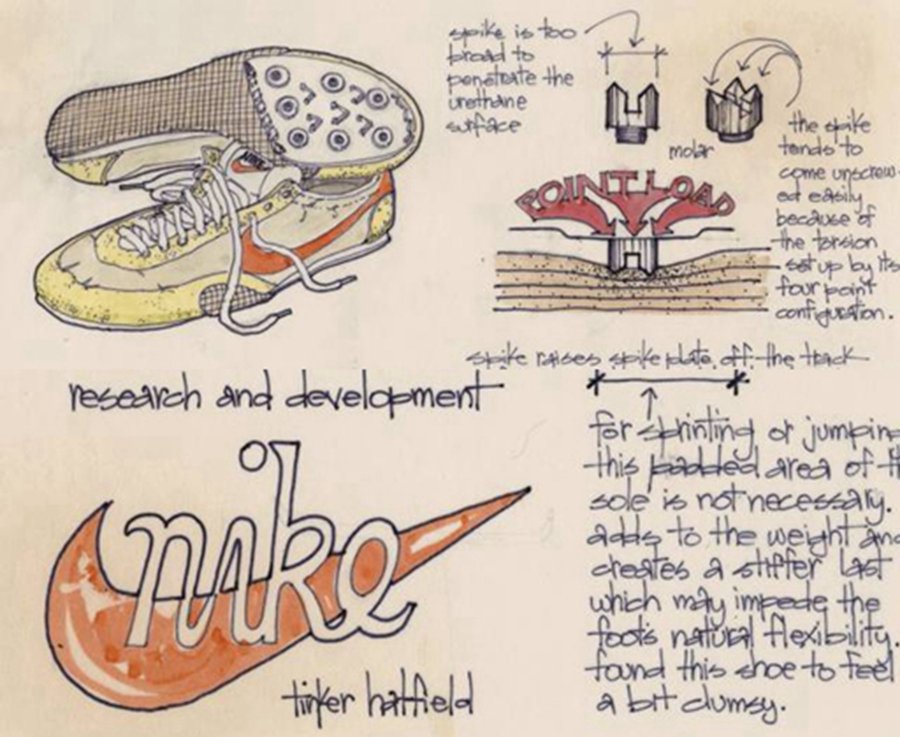 spike is too
broad to
penetrate the
urethane
surface
molar
the spike
tends to
come unscrew-
ed easily
because of
the torsion
set up by its
four point
configuration.
POINT LOAD
spike raises spike plate off the track
research and development
for sprinting or jumping
this padded area of th
sole is not necessary.
adds to the weight and
creates a stiffer last
which may impede the
foot's natural flexibility.
found this shoe to feel
a bit clumsy.
nike
tinker hatfield